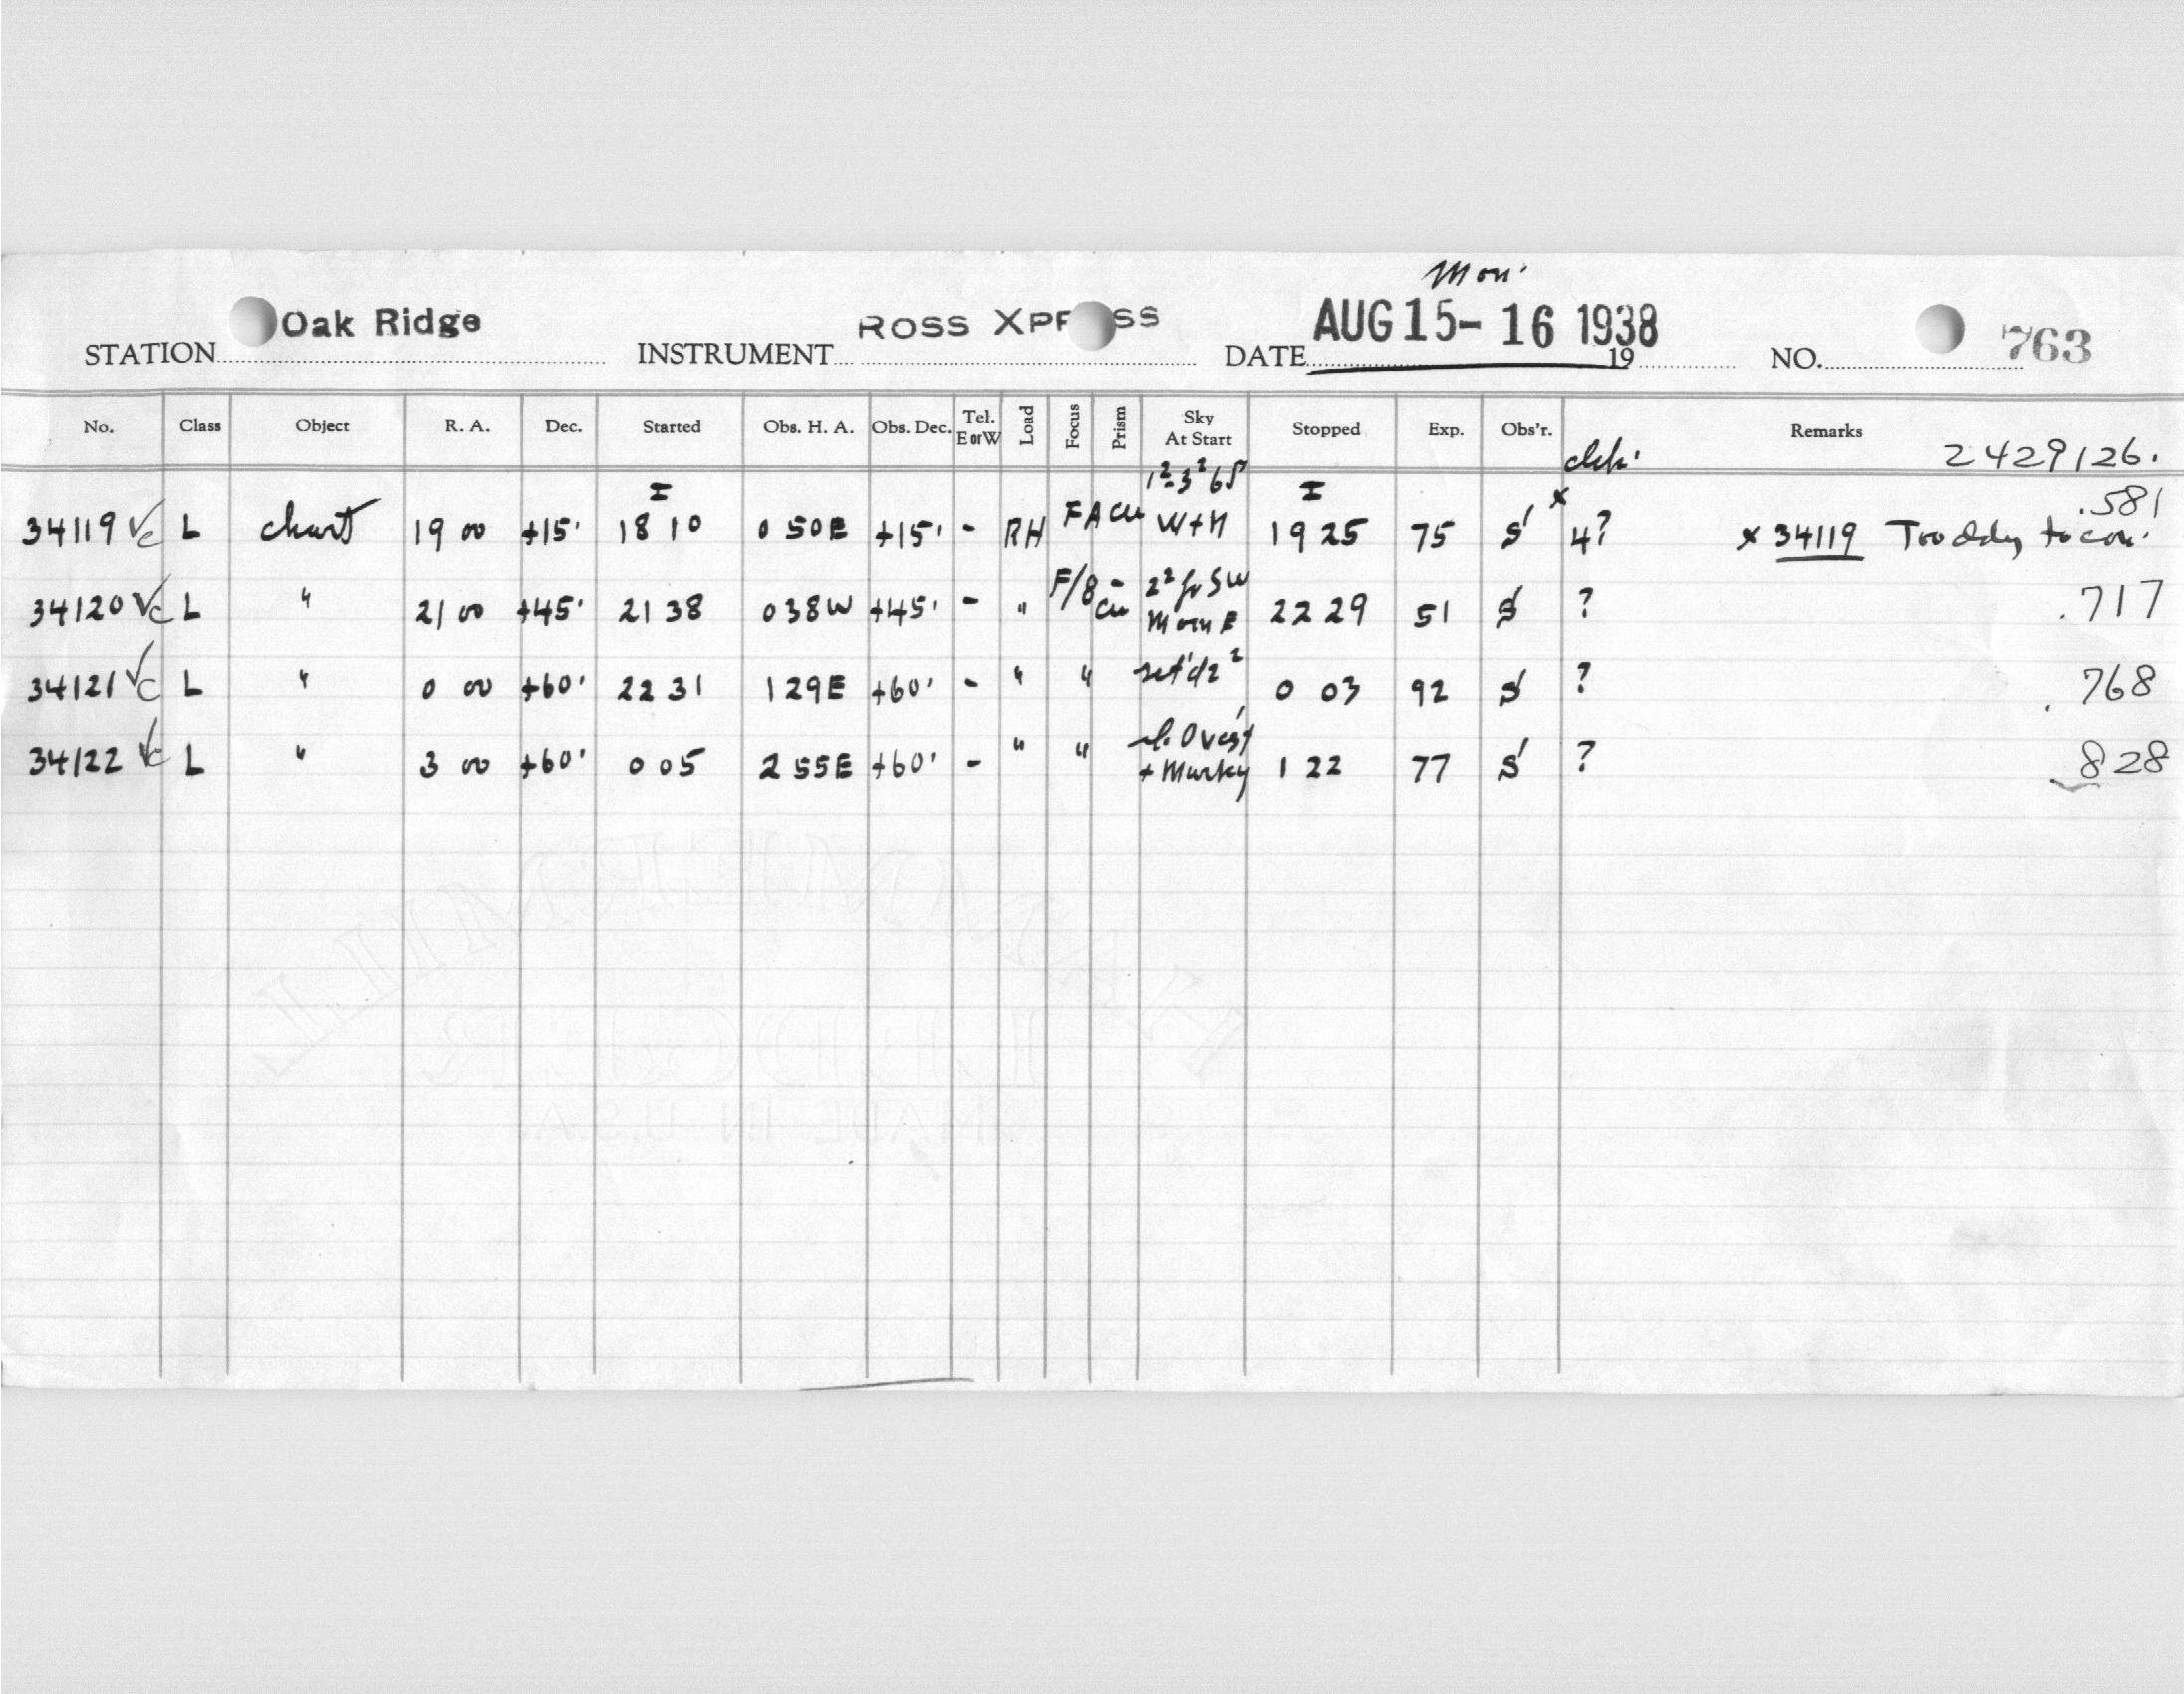 Mon.
STATION Oak Ridge INSTRUMENT ROSS XPR SS DATE AUG 15-16 1938 19 NO. 763
No. Class Object R. A. Dec. Started Obs. H. A. Obs. Dec. Tel. E or W Load Focus Prism Sky At Start Stopped Exp. Obs'r. Remarks 2429126.
34119 √c L chart 19 00 +15° I 18 10 0 50E +15° - RH FA cu W+H I 19 25 75 S x 4? x 34119 Too to .581
34120 √c L " 21 00 +45° 21 38 0 38W +45° - " F/8- cu 2² SW Moon E 22 29 51 S ? .717
34121 √c L " 0 00 +60° 22 31 1 29E +60° - " " 0 03 92 S ? .768
34122 √c L " 3 00 +60° 0 05 2 55E +60° - " " + Murky 1 22 77 S ? .828
HAMMERMILL
LEDGER
MADE IN U.S.A.